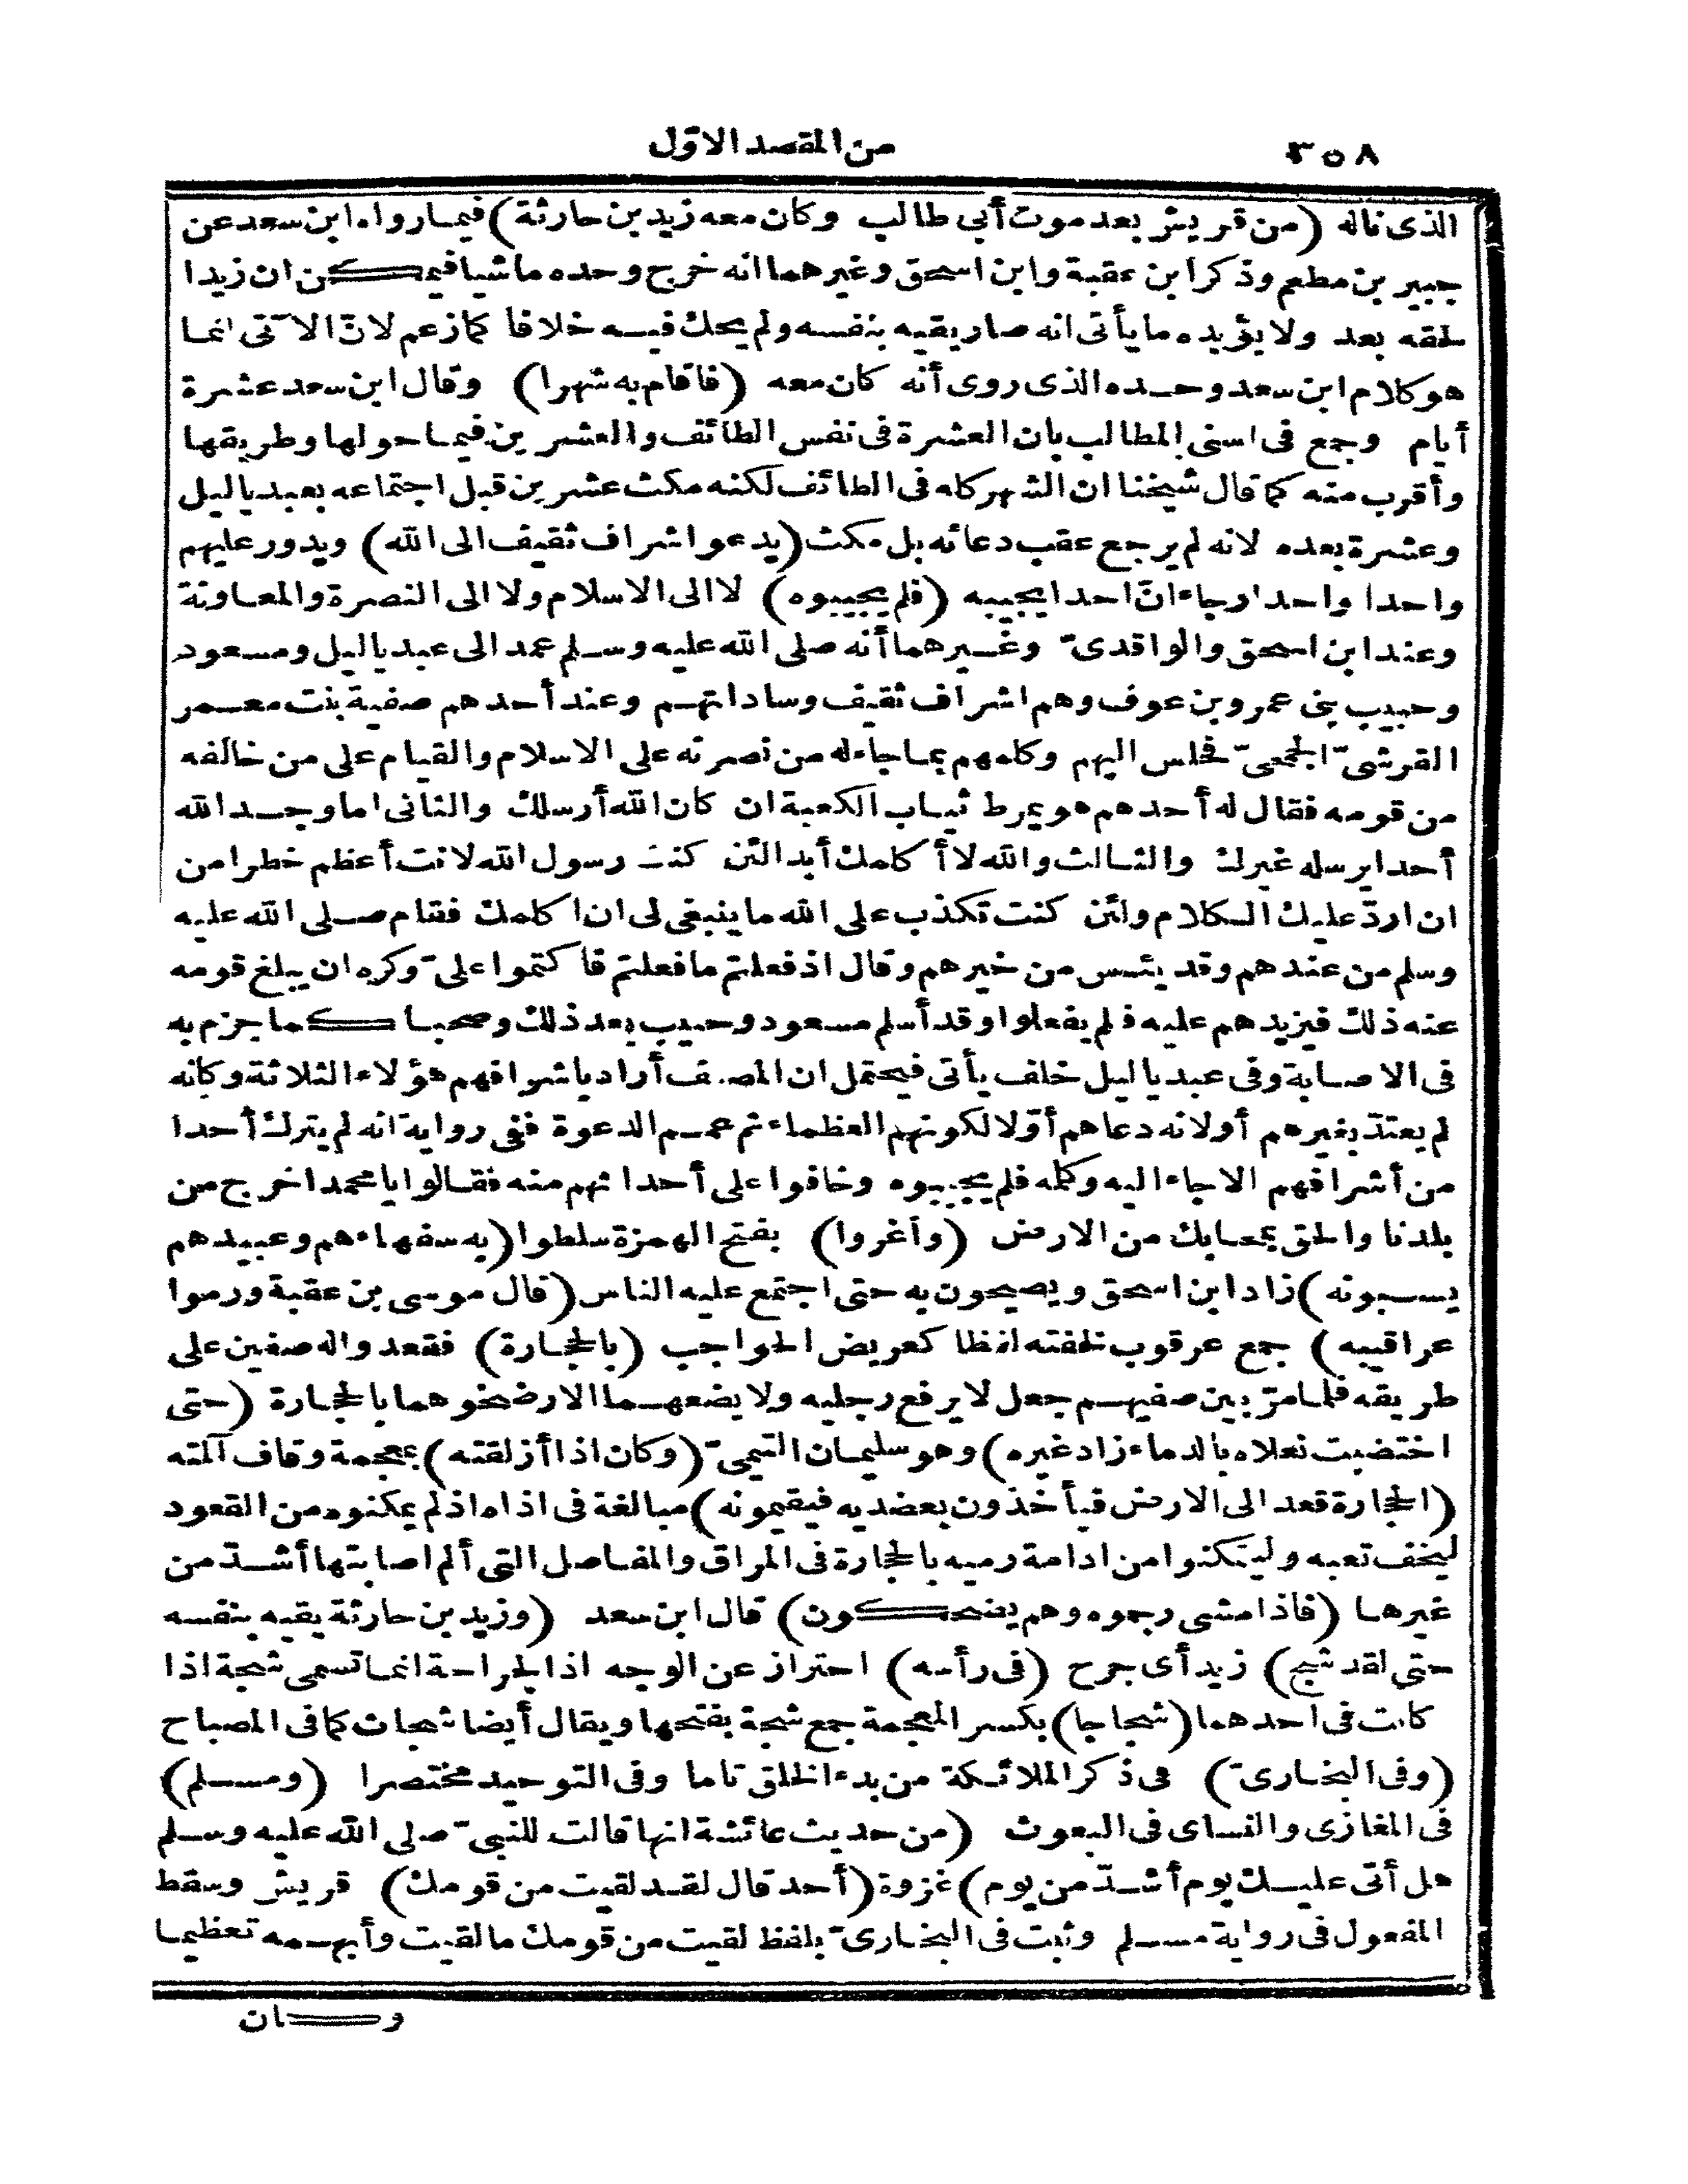 ٣٥٨
من المقصد الاوّل
الذى ناله (من قريش بعد موت أبى طالب وكان معه زيد بن حارثة) فيما رواه ابن سعد عن
جبير بن مطعم وذكر ابن عقبة وابن اسحق وغيرهما انه خرج وحده ماشيا فيمكن ان زيدا
لحقه بعد ولا يؤيده ما يأتى انه صار يقيه بنفسه ولم يحك فيه خلافا كما زعم لانّ الآتى انما
هو كلام ابن سعد وحده الذى روى أنه كان معه (فاقام به شهرا) وقال ابن سعد عشرة
أيام وجمع فى اسنى المطالب بان العشرة فى نفس الطائف والعشرين فيما حولها وطريقها
وأقرب منه كما قال شيخنا ان الشهر كله فى الطائف لكنه مكث عشرين قبل اجتماعه بعبد ياليل
وعشرة بعده لانه لم يرجع عقب دعائه بل مكث (يدعو اشراف ثقيف الى الله) ويدور عليهم
واحدا واحدا رجاء انّ احدا يجيبه (فلم يجيبوه) لا الى الاسلام ولا الى النصرة والمعاونة
وعند ابن اسحق والواقدىّ وغيرهما أنه صلى الله عليه وسلم عمد الى عبد ياليل ومسعود
وحبيب بنى عمرو بن عوف وهم اشراف ثقيف وساداتهم وعند أحدهم صفية بنت معمر
القرشىّ الجمعىّ فجلس اليهم وكلمهم بما جاء له من نصرته على الاسلام والقيام على من خالفه
من قومه فقال له أحدهم هو يمرط ثياب الكعبة ان كان الله أرسلك والثانى اما وجد الله
أحدا يرسله غيرك والثالث والله لا أكلمك أبدا لئن كنت رسول الله لانت أعظم خطرا من
ان اردّ عليك الكلام ولئن كنت تكذب على الله ما ينبغى لى ان اكلمك فقام صلى الله عليه
وسلم من عندهم وقد يئس من خيرهم وقال اذ فعلتم ما فعلتم فاكتموا علىّ وكره ان يبلغ قومه
عنه ذلك فيزيدهم عليه فلم يفعلوا وقد أسلم مسعود وحبيب بعد ذلك وصحبا كما جزم به
فى الاصابة وفى عبد ياليل خلف يأتى فيحتمل ان المصنف أراد باشرافهم هؤلاء الثلاثة وكانه
لم يعتدّ بغيرهم أولانه دعاهم أوّلا لكونهم العظماء ثم عمم الدعوة ففى رواية انه لم يترك أحدا
من أشرافهم الا جاء اليه وكلمه فلم يجيبوه وخافوا على أحداثهم منه فقالوا يا محمد اخرج من
بلدنا والحق بمحابك من الارض (وأغروا) بفتح الهمزة سلطوا (به سفهاءهم وعبيدهم
يسبونه) زاد ابن اسحق ويصيحون به حتى اجتمع عليه الناس (قال موسى بن عقبة ورموا
عراقيبه) جمع عرقوب تلفته لفظا كعريض الحواجب (بالحجارة) فقعدوا له صفين على
طريقه فلما مرّ بين صفيهم جعل لا يرفع رجليه ولا يضعهما الا رضخوهما بالحجارة (حتى
اختضبت نعلاه بالدماء زاد غيره) وهو سليمان التيمىّ (وكان اذا أزلقته) بمعجمة وقاف آلمته
(الحجارة قعد الى الارض فيأخذون بعضديه فيقيمونه) مبالغة فى اذاه اذ لم يمكنوه من القعود
ليخف تعبه وليتمكنوا من ادامة رميه بالحجارة فى المراق والمفاصل التى ألم اصابتها أشدّ من
غيرها (فاذا مشى رجموه وهم يضحكون) قال ابن سعد (وزيد بن حارثة يقيه بنفسه
حتى لقد شج) زيد أى جرح (فى رأسه) احتراز عن الوجه اذ الجراحة انما تسمى شجة اذا
كانت فى احدهما (شجاجا) بكسر المعجمة جمع شجة بفتحها ويقال أيضا شجات كما فى المصباح
(وفى البخارىّ) فى ذكر الملائكة من بدء الخلق تاما وفى التوحيد مختصرا (ومسلم)
فى المغازى والنساى فى البعوث (من حديث عائشة انها قالت للنبىّ صلى الله عليه وسلم
هل أتى عليك يوم أشدّ من يوم) غزوة (أحد قال لقد لقيت من قومك) قريش وسقط
المفعول فى رواية مسلم وثبت فى البخارىّ بلفظ لقيت من قومك ما لقيت وأبهمه تعظيما
وكان